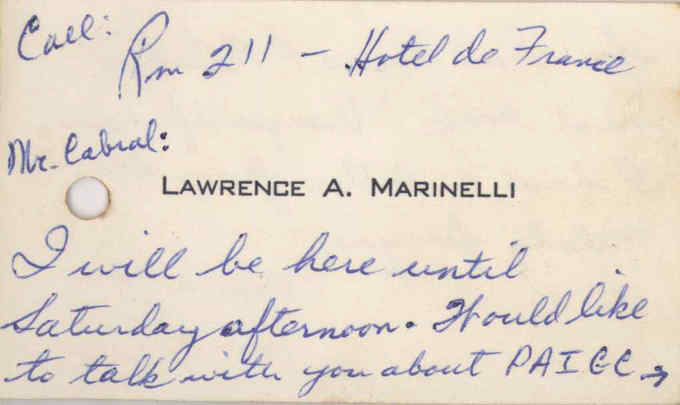 Call: Rm 211 - Hotel de France
Mr. Cabral:
LAWRENCE A. MARINELLI
I will be here until
Saturday afternoon. Would like
to talk with you about PAIGC →